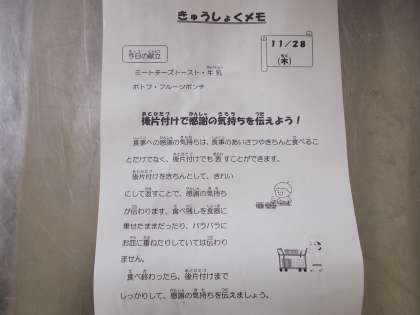 きゅうしょくメモ
11/28
(木)
今日の献立
ミートチーズトースト・牛乳
ポトフ・フルーツポンチ
後片付けで感謝の気持ちを伝えよう！
食事への感謝の気持ちは、食事のあいさつやきちんと食べるこ
とだけでなく、後片付けでも表すことができます。
後片付けをきちんとして、きれい
にして返すことで、感謝の気持ち
が伝わります。食べ残しを食器に
乗せたままだったり、バラバラに
お皿に重ねたりしていては伝わり
ません。
食べ終わったら、後片付けまで
しっかりして、感謝の気持ちを伝えましょう。